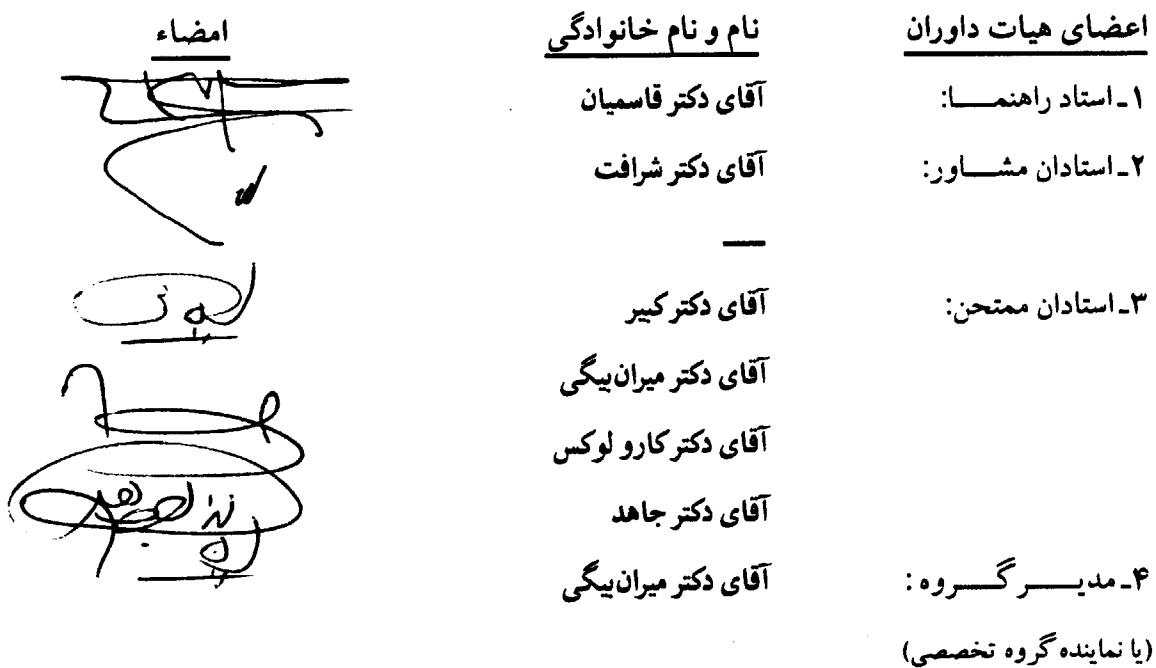 اعضای هیات داوران نام و نام خانوادگی امضاء
۱ـ استاد راهنمــــا: آقای دکتر قاسمیان
۲ـ استادان مشــــاور: آقای دکتر شرافت
—
۳ـ استادان ممتحن: آقای دکتر کبیر
آقای دکتر میران‌بیگی
آقای دکتر کارو لوکس
آقای دکتر جاهد
۴ـ مدیــــر گــــروه : آقای دکتر میران‌بیگی
(یا نماینده گروه تخصصی)